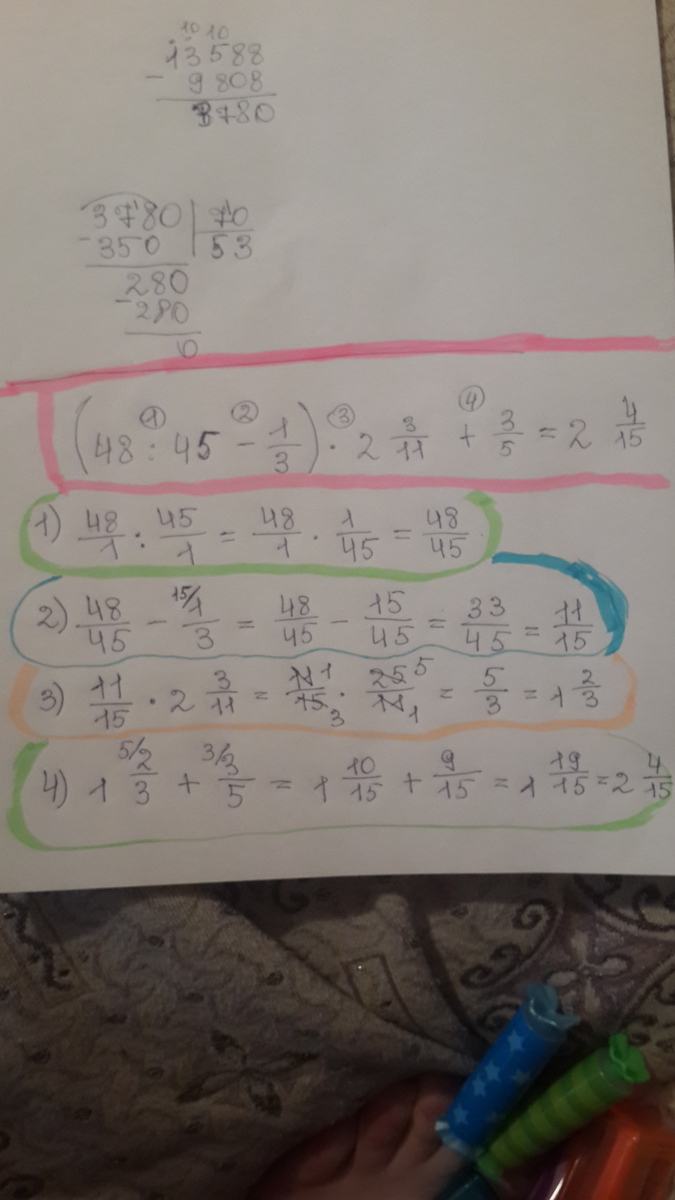 10 10
13588
- 9808
3780
3780 | 70
-350 | 53
280
-280
0
(48 : 45 - 1/3) · 2 3/11 + 3/5 = 2 4/15
① ② ③ ④
1) 48/1 : 45/1 = 48/1 · 1/45 = 48/45
2) 48/45 - 15/ 1/3 = 48/45 - 15/45 = 33/45 = 11/15
3) 11/15 · 2 3/11 = 11 1/15 3 · 25 5/11 1 = 5/3 = 1 2/3
4) 1 5/ 2/3 + 3/ 3/5 = 1 10/15 + 9/15 = 1 19/15 = 2 4/15